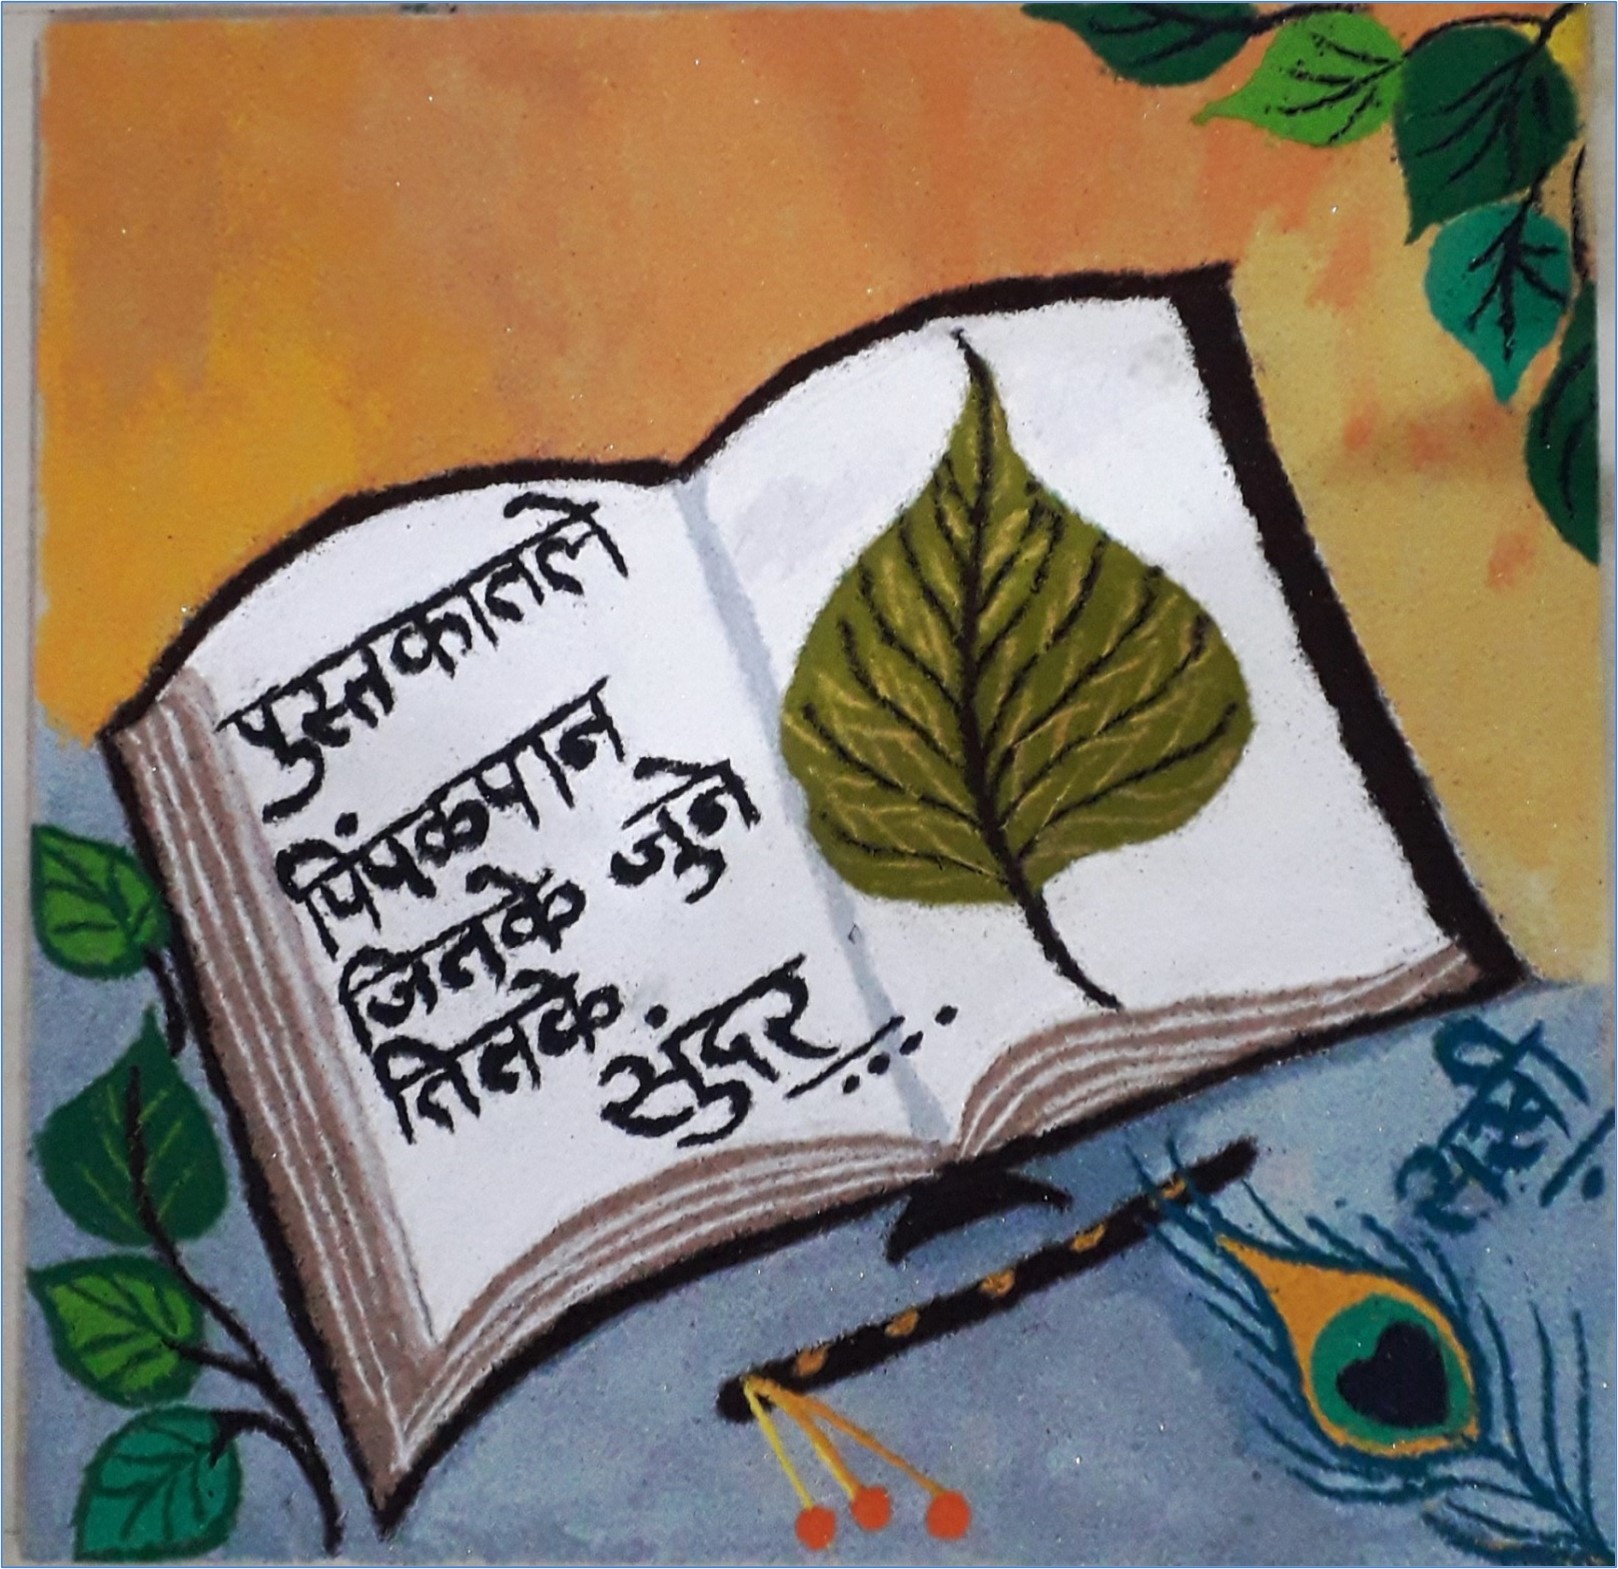 पुस्तकातले
पिंपळपान
जितके जुने
तितके सुंदर...